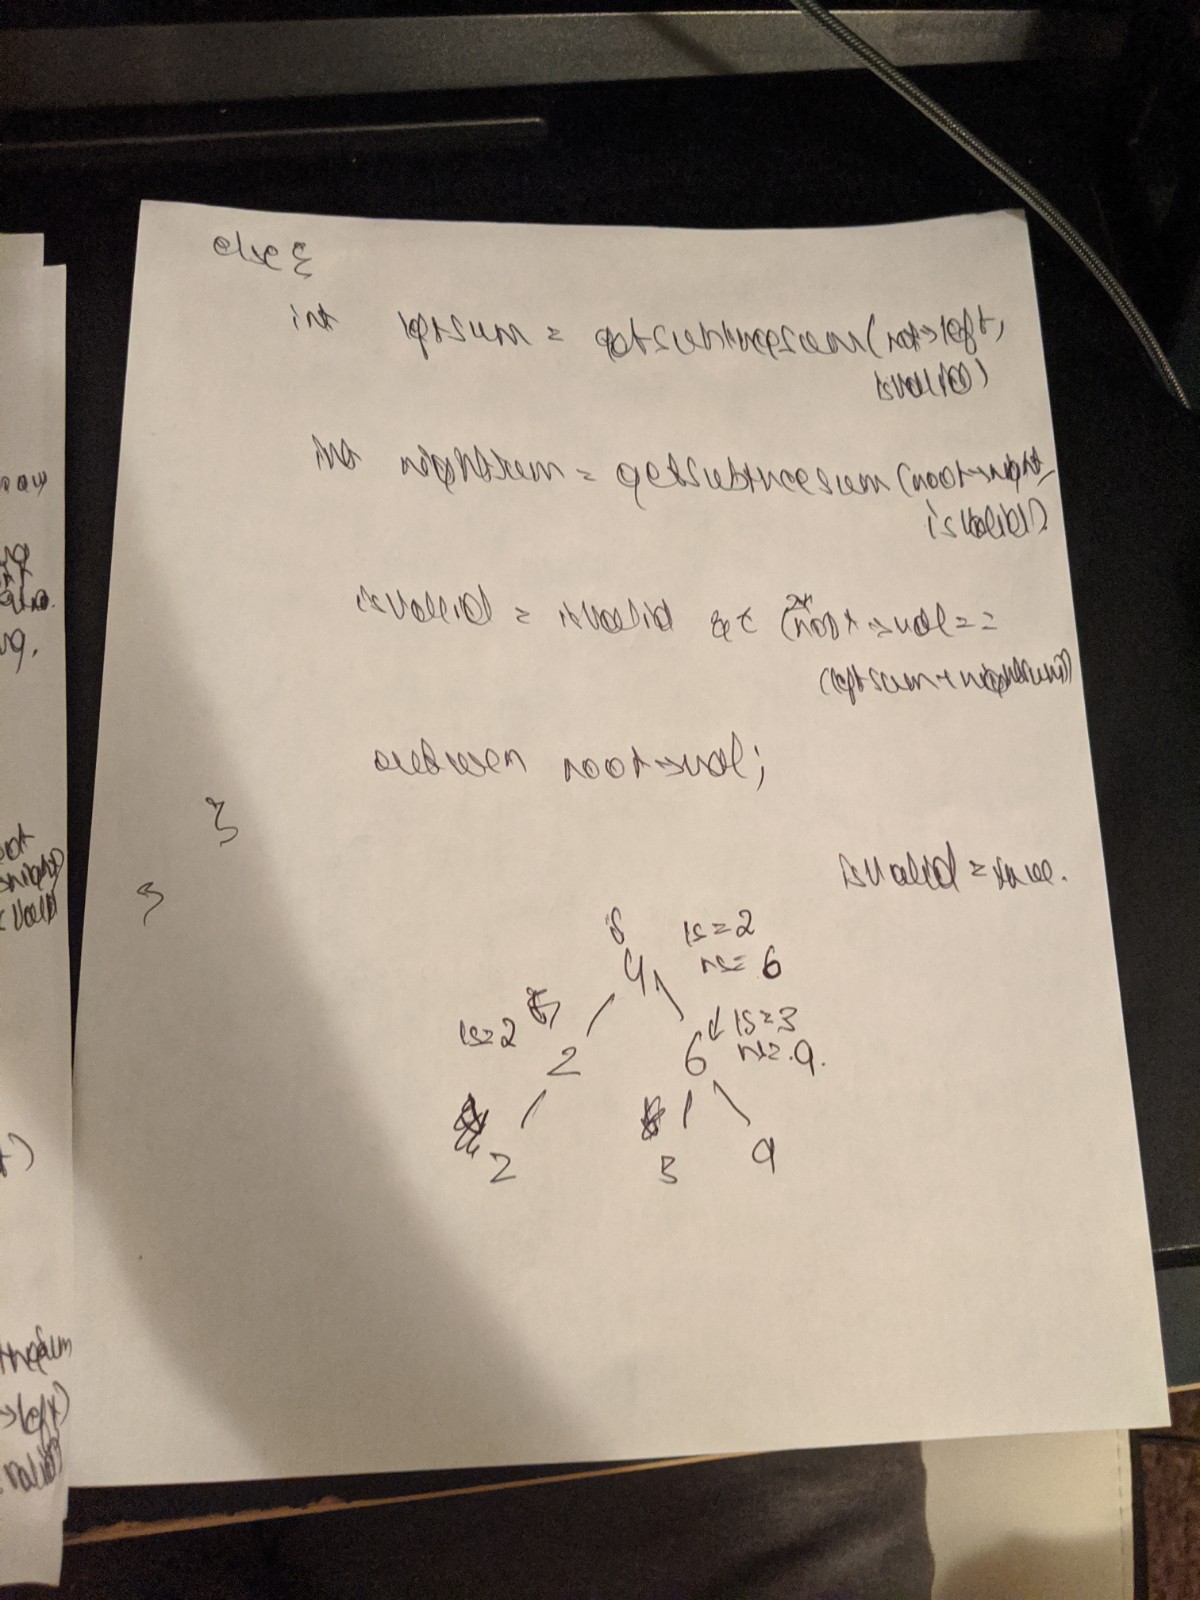 else {
int leftsum = getsubtreesum(root->left,
isvalid)
int rightsum = getsubtreesum(root->right,
isvalid).
isvalid = isvalid && (2*root->val ==
(leftsum + rightsum))
return root->val;
}
}
isvalid = true.
8
4
ls = 2
rs = 6
ls = 2
2
6
ls = 3
rs = 9.
2
3
9
raw
ng.
root
valid
treesum
->left)
valid)